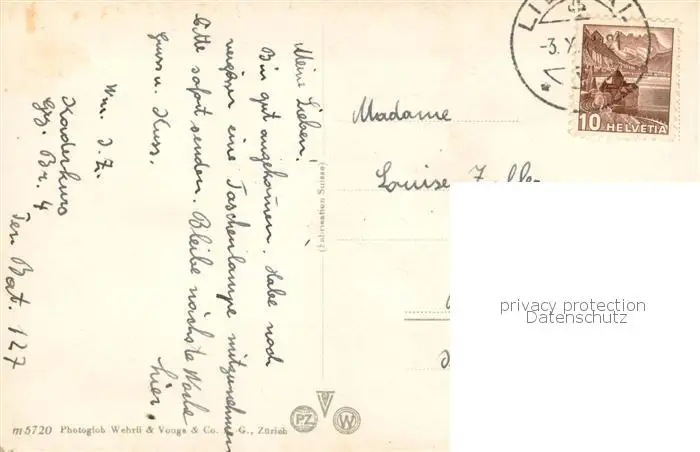 Meine Lieben!
Bin gut angekommen. Habe noch
vergessen eine Taschenlampe mitzunehmen
bitte sofort senden. Bleibe nächste Woche
hier.
Gruss u. Kuss.
Kaderkurs
Gz. Br. 4
Ter. Bat. 127
Madame
Louise
(Fabrication Suisse)
HELVETIA
10
-3. X
PZ
W
m5720 Photoglob Wehrli & Vouga & Co. A.-G., Zürich
privacy protection
Datenschutz